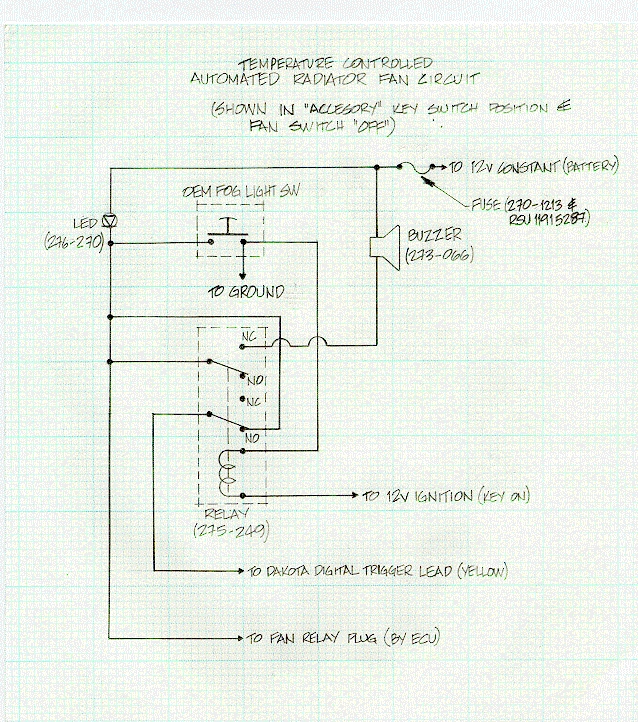 TEMPERATURE CONTROLLED
AUTOMATED RADIATOR FAN CIRCUIT
(SHOWN IN "ACCESORY" KEY SWITCH POSITION &
FAN SWITCH "OFF")
TO 12V CONSTANT (BATTERY)
OEM FOG LIGHT SW
FUSE (270-1213 &
RSU 11915287)
LED
(276-270)
BUZZER
(273-066)
TO GROUND
NC
NO
NC
NO
TO 12V IGNITION (KEY ON)
RELAY
(275-249)
TO DAKOTA DIGITAL TRIGGER LEAD (YELLOW)
TO FAN RELAY PLUG (BY ECU)